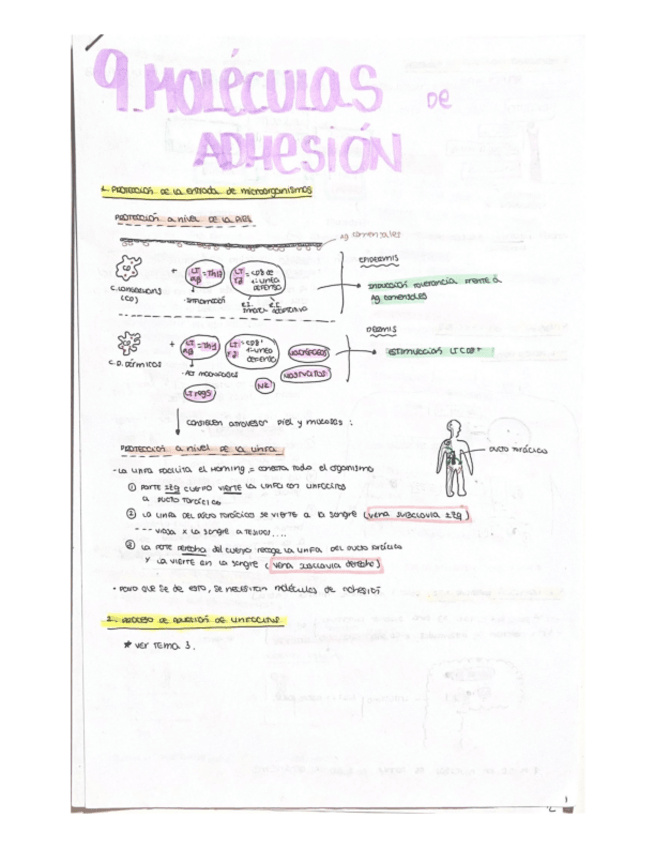 9. MOLÉCULAS DE
ADHESIÓN
1. PROTECCIÓN DE LA ENTRADA de microorganismos
PROTECCIÓN a nivel DE LA PIEL
Ag comensales
EPIDERMIS
C. LANGERHANS
(CD)
+ LT αβ = TH17
LT γδ = 1ª línea defensa
INDUCCIÓN TOLERANCIA FRENTE A
Ag comensales
DERMIS
C.D. DÉRMICAS
+ LT αβ = TH1
LT γδ = línea defensa
MACRÓFAGOS
MASTOCITOS
NK
LT regs
ESTIMULACIÓN LT CD8+
consiguen atravesar piel y mucosas :
PROTECCIÓN a nivel DE LA LINFA
- LA LINFA FACILITA EL HOMING = conecta todo el organismo
DUCTO TORÁCICO
① PARTE IZQ CUERPO VIERTE LA LINFA CON LINFOCITOS
A DUCTO TORÁCICO
② LA LINFA DEL DUCTO TORÁCICO SE VIERTE A LA SANGRE (VENA SUBCLAVIA IZQ)
--- VIAJA X LA SANGRE A TEJIDOS....
③ LA PARTE DERECHA del cuerpo recoge LA LINFA DEL DUCTO TORÁCICO
Y LA VIERTE EN LA SANGRE (VENA SUBCLAVIA derecha)
- PARA QUE SE DE ESTO, SE NECESITAN moléculas de adhesión
2. PROCESO DE ADHESIÓN DE LINFOCITOS
* VER TEMA 3.
1